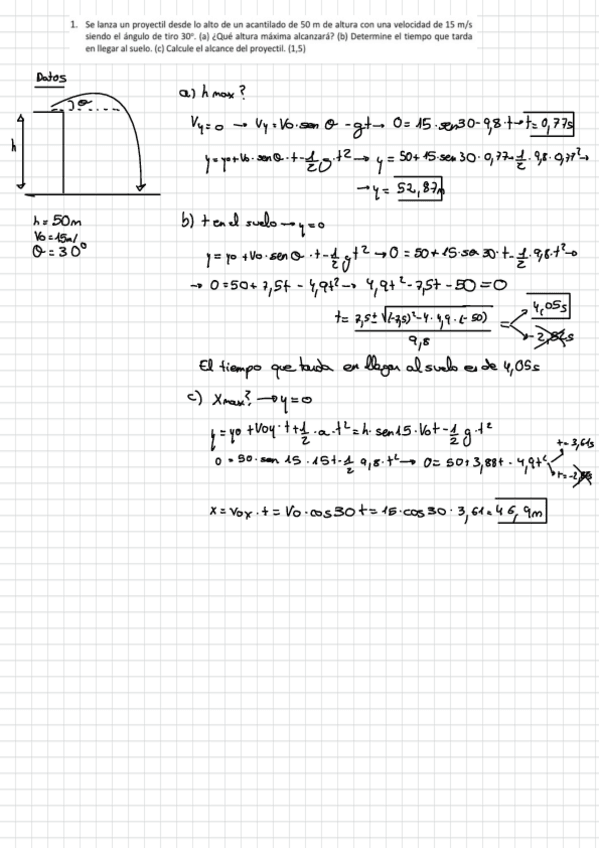 1. Se lanza un proyectil desde lo alto de un acantilado de 50 m de altura con una velocidad de 15 m/s
siendo el ángulo de tiro 30º. (a) ¿Qué altura máxima alcanzará? (b) Determine el tiempo que tarda
en llegar al suelo. (c) Calcule el alcance del proyectil. (1,5)
Datos
θ
h
h = 50m
Vo = 15m/
θ = 30º
a) h max?
Vy = 0 → Vy = Vo · sen θ - gt → 0 = 15 · sen 30 - 9,8 t → t = 0,77s
y = yo + Vo · sen θ · t - 1/2 g · t² → y = 50 + 15 · sen 30 · 0,77 - 1/2 · 9,8 · 0,77² →
→ y = 52,87m
b) t en el suelo → y = 0
y = yo + Vo · sen θ · t - 1/2 g t² → 0 = 50 + 15 · sen 30 · t - 1/2 · 9,8 · t² →
→ 0 = 50 + 7,5t - 4,9t² → 4,9t² - 7,5t - 50 = 0
t = 7,5 ± √(-7,5)² - 4 · 4,9 · (-50) / 9,8 = 4,05s
El tiempo que tarda en llegar al suelo es de 4,05s
c) Xmax? → y = 0
y = yo + Voy · t + 1/2 · a · t² = h · sen 15 · Vo t - 1/2 g · t²
0 = 50 · sen 15 · 15t - 1/2 9,8 · t² → 0 = 50 + 3,88t - 4,9t² t = 3,61s
x = Vox · t = Vo · cos 30 t = 15 · cos 30 · 3,61 = 46,9m